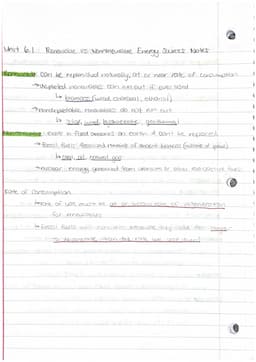 Unit 6.1 Renewable vs Nonrenewable Energy Sources Notes
Renewable can be replenished naturally, at or near rate of consumption
→ Depleted renewables can run out if overused
↳ biomass (wood, charcoal, ethanol)
→ nondepletable renewables do not run out
↳ solar, wind, hydroelectric, geothermal
Nonrenewable: exists in fixed amounts on earth & can't be replaced
→ Fossil fuels: fossilized remains of ancient biomass
↳ coal, oil, natural gas
→ nuclear: energy generated from uranium or other radioactive fuels
Rate of Consumption
→ rate of use must be at or below rate of regeneration
for renewables
→ fossil fuels will run out because they take far longer
to regenerate than the rate we use them